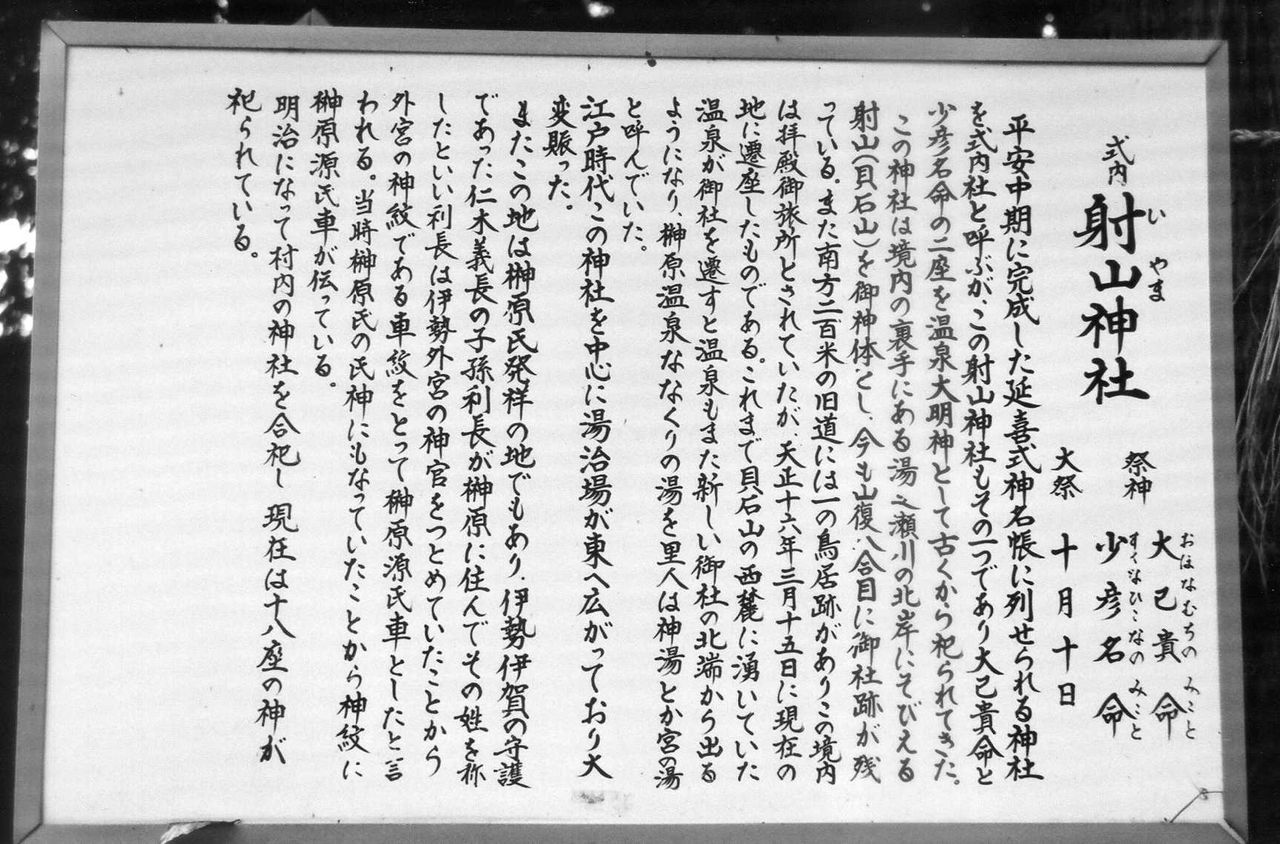 式内 射山神社
いやま
祭神 大己貴命
おほなむちの みこと
少彦名命
すくなひこなの みこと
大祭 十月十日
平安中期に完成した延喜式神名帳に列せられる神社
を式内社と呼ぶが、この射山神社もその一つであり大己貴命と
少彦名命の二座を温泉大明神として古くから祀られてきた。
この神社は境内の裏手にある湯之瀬川の北岸にそびえる
射山(貝石山)を御神体とし、今も山復八合目に御社跡が残
っている、また南方二百米の旧道には一の鳥居跡がありこの境内
は拝殿御旅所とされていたが、天正十六年三月十五日に現在の
地に遷座したものである。これまで貝石山の西麓に湧いていた
温泉が御社を遷すと温泉もまた新しい御社の北端から出る
ようになり、榊原温泉ななくりの湯を里人は神湯とか宮の湯
と呼んでいた。
江戸時代この神社を中心に湯治場が東へ広がっており大
変賑った。
またこの地は榊原氏発祥の地でもあり、伊勢伊賀の守護
であった仁木義長の子孫利長が榊原に住んでその姓を称
したといい利長は伊勢外宮の神官をつとめていたことから
外宮の神紋である車紋をとって榊原源氏車としたと言
われる。当時榊原氏の氏神にもなっていたことから神紋に
榊原源氏車が伝っている。
明治になって村内の神社を合祀し現在は十八座の神が
祀られている。